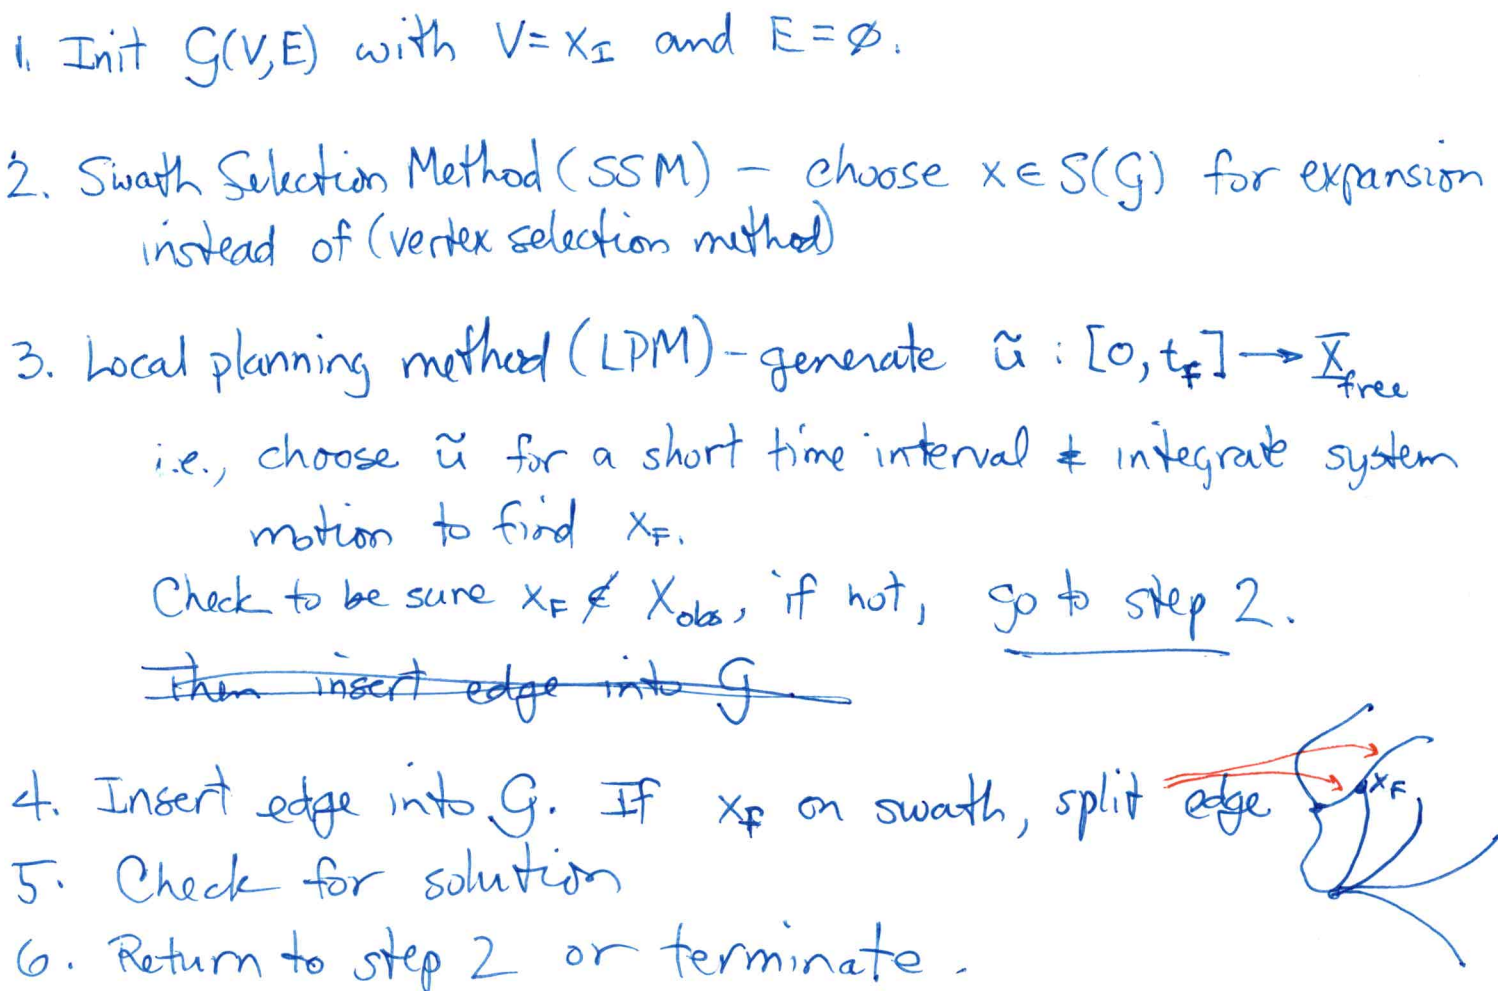 1. Init G(V,E) with V = x_I and E = ∅.
2. Swath Selection Method (SSM) – choose x ∈ S(G) for expansion
instead of (vertex selection method)
3. Local planning method (LPM) – generate ũ : [0, t_F] → X_free
i.e., choose ũ for a short time interval & integrate system
motion to find x_F.
Check to be sure x_F ∉ X_obs, if not, go to step 2.
Then insert edge into G
4. Insert edge into G. If x_F on swath, split edge x_F
5. Check for solution
6. Return to step 2 or terminate.